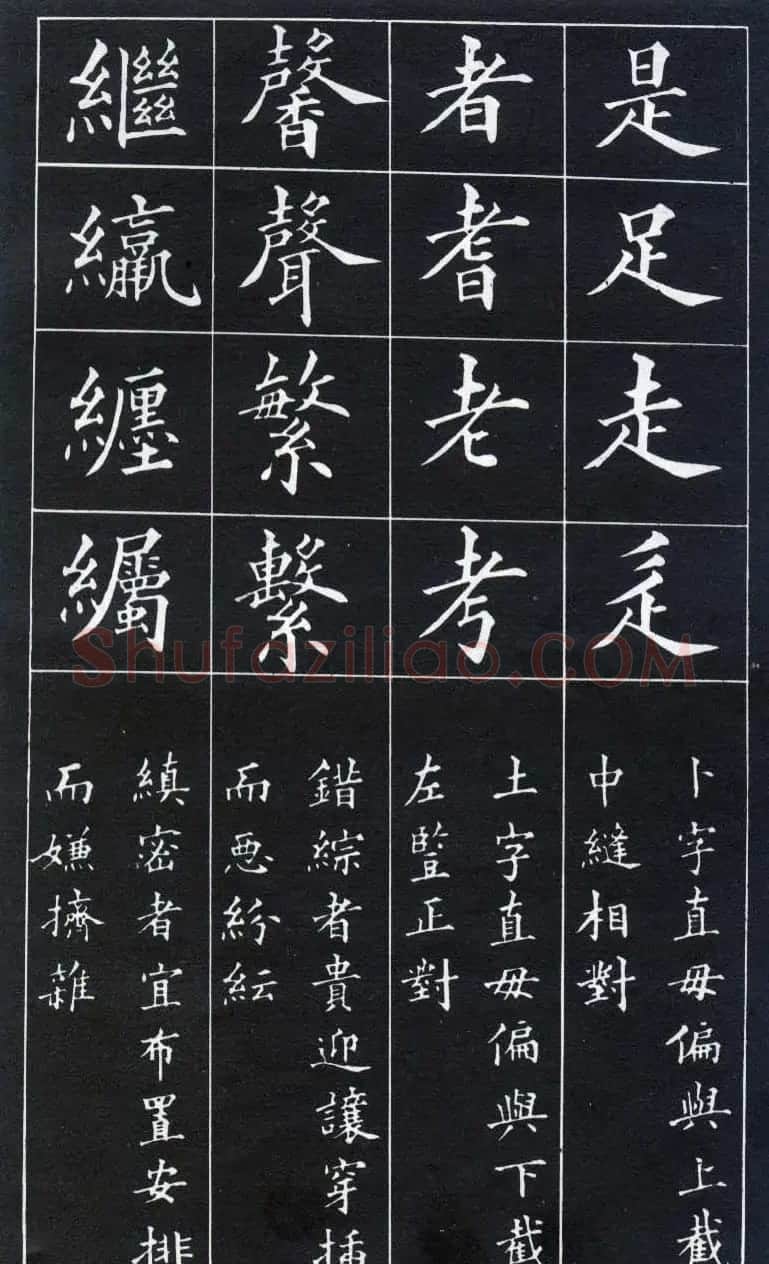 是足走辵
卜字直毋偏與上截
中縫相對
者耆老考
土字直毋偏與下截
左豎正對
馨聲繁繫
錯綜者貴迎讓穿插
而惡紛紜
繼纏
縝密者宜布置安排
而嫌擠雜
Shufaziliao.COM